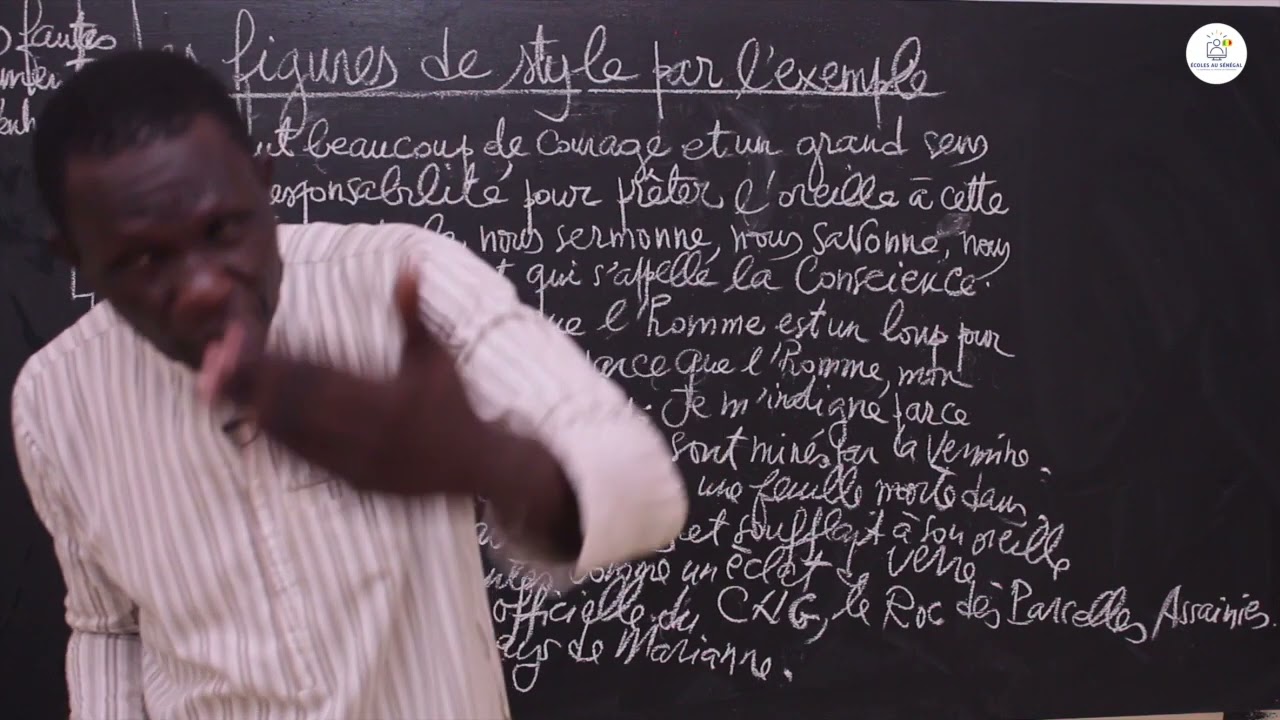 fautes
figures de style par l'exemple
ut beaucoup de courage et un grand sens
esponsabilité pour prêter l'oreille à cette
nous sermonne, nous savonne, nous
qui s'appelle la Conscience.
ue l'homme est un loup pour
arce que l'homme, mon
Je m'indigne parce
sont minés par la vermine.
une feuille morte dans
et soufflait à son oreille
comme un éclat de verre
officielle du CNG, le Roc des Parcelles Assainies.
ays de Marianne.
ÉCOLES AU SÉNÉGAL